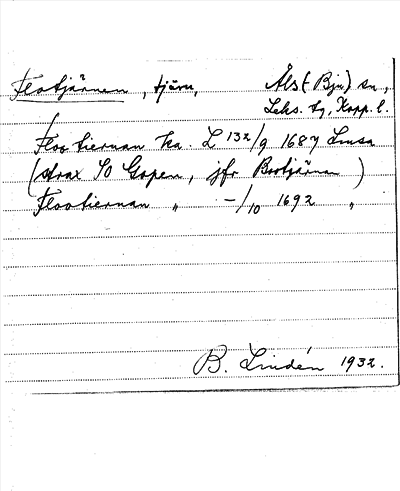 Flotjärnen, tjärn, Åls (Bju) sn,
Leks. tg, Kopp. l.
Floo tiernan Ka. L 132/9 1687 Linsa
(strax SO Gopen, jfr Brotjärnen)
Flootiernan " -/10 1692 "
B. Lindén 1932.